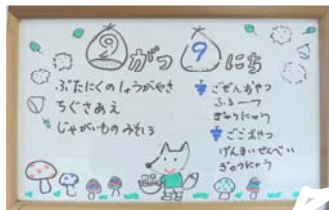 9がつ9にち
ぶたにくのしょうがやき
ちぐさあえ
じゃがいものみそしる
ごぜんおやつ
ふるーつ
ぎゅうにゅう
ごごおやつ
げんまいせんべい
ぎゅうにゅう